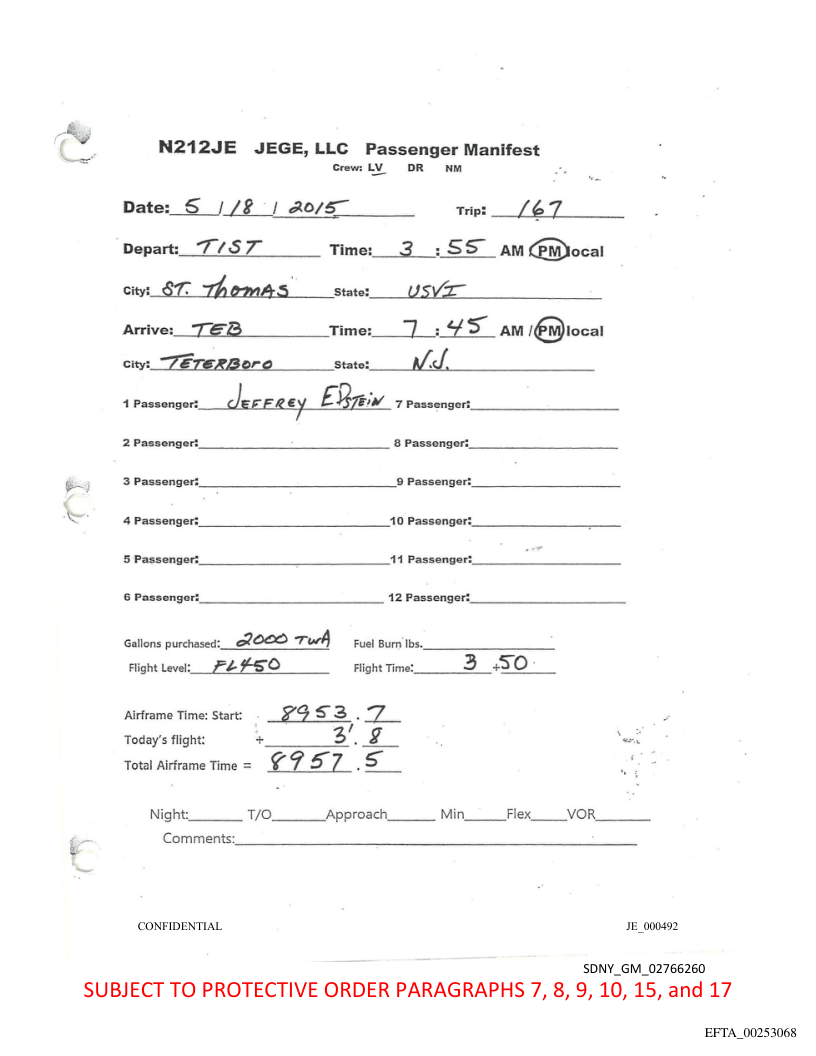 N212JE JEGE, LLC Passenger Manifest
Crew: LV DR NM
Date: 5 / 18 / 2015 Trip: 167
Depart: TIST Time: 3 : 55 AM / PM local
City: ST. THOMAS State: USVI
Arrive: TEB Time: 7 : 45 AM / PM local
City: TETERBORO State: N.J.
1 Passenger: JEFFREY EPSTEIN 7 Passenger:
2 Passenger: 8 Passenger:
3 Passenger: 9 Passenger:
4 Passenger: 10 Passenger:
5 Passenger: 11 Passenger:
6 Passenger: 12 Passenger:
Gallons purchased: 2000 TWA Fuel Burn lbs.
Flight Level: FL450 Flight Time: 3 + 50
Airframe Time: Start: 8953 . 7
Today's flight: + 3 . 8
Total Airframe Time = 8957 . 5
Night: T/O Approach Min Flex VOR
Comments:
CONFIDENTIAL JE_000492
SDNY_GM_02766260
SUBJECT TO PROTECTIVE ORDER PARAGRAPHS 7, 8, 9, 10, 15, and 17
EFTA_00253068